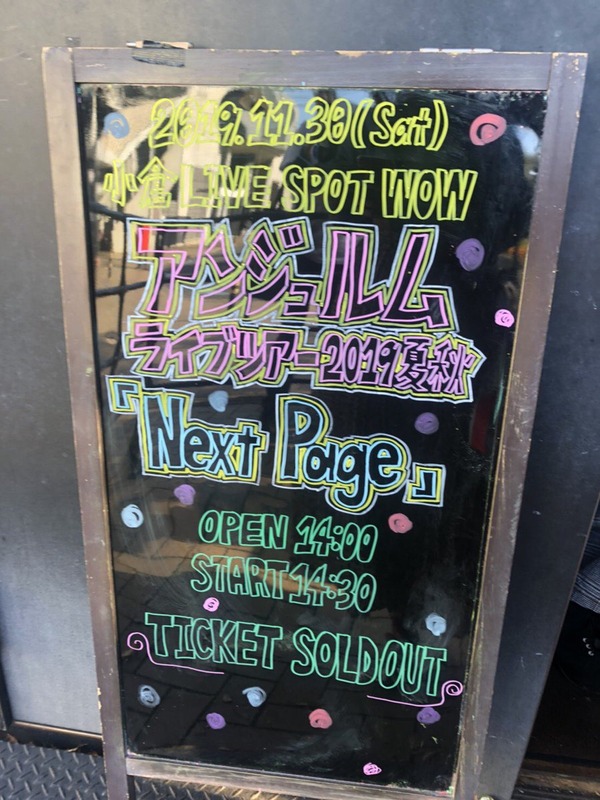 2019.11.30(Sat)
小倉 LIVE SPOT WOW
アンジュルム
ライブツアー2019夏秋
『Next Page』
OPEN 14:00
START 14:30
TICKET SOLDOUT